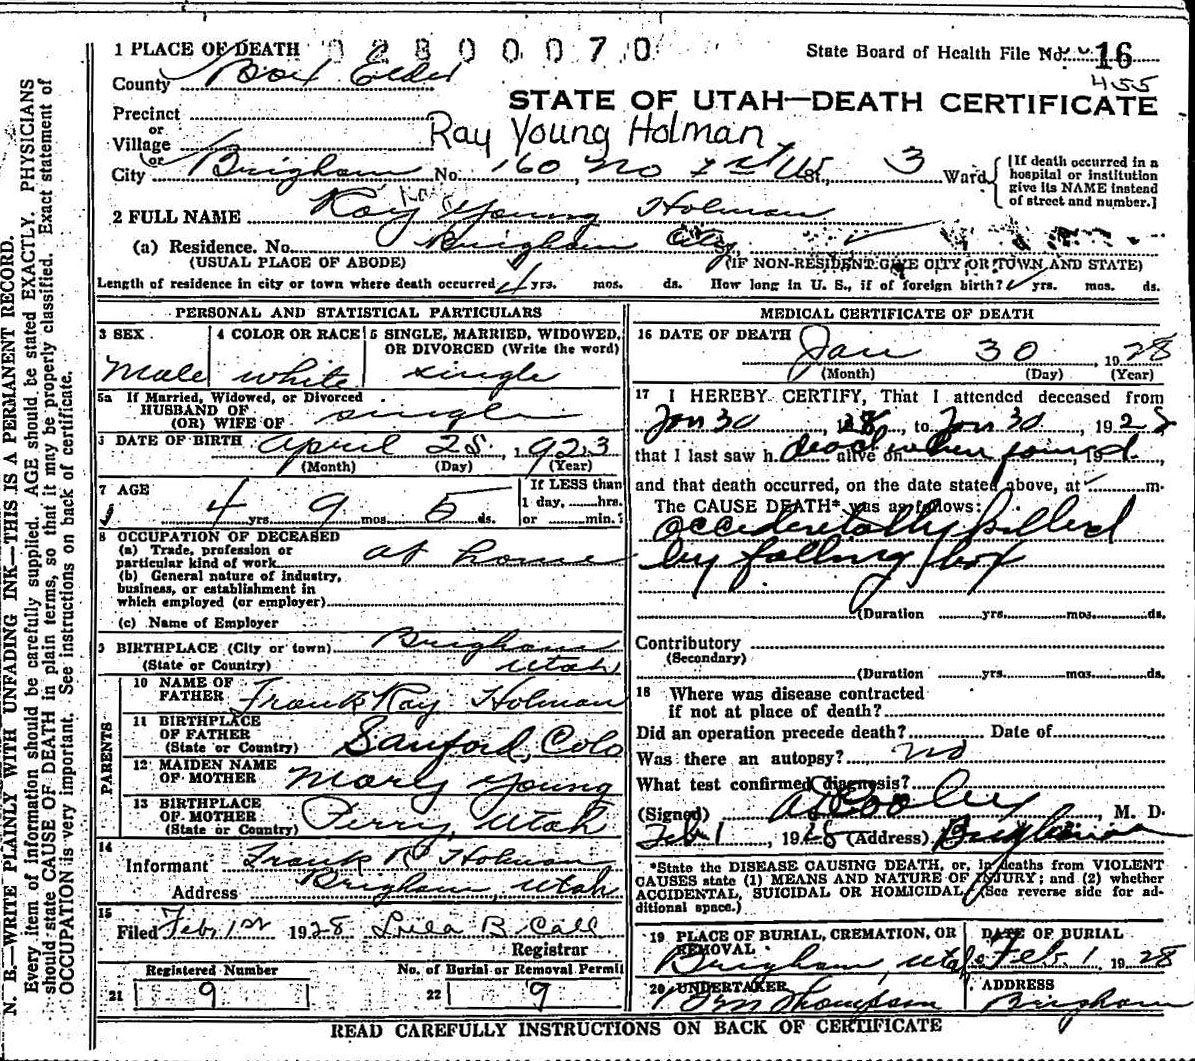 1 PLACE OF DEATH 02800070 State Board of Health File No. 16
County Box Elder 455
STATE OF UTAH—DEATH CERTIFICATE
Precinct
or
Village Ray Young Holman
or
City Brigham No. 160 No 1st W St., 3 Ward
[If death occurred in a hospital or institution give its NAME instead of street and number.]
2 FULL NAME Ray Young Holman
(a) Residence. No. Brigham City
(USUAL PLACE OF ABODE) (IF NON-RESIDENT GIVE CITY OR TOWN AND STATE)
Length of residence in city or town where death occurred 4 yrs. mos. ds. How long in U. S., if of foreign birth? yrs. mos. ds.
PERSONAL AND STATISTICAL PARTICULARS
3 SEX 4 COLOR OR RACE 5 SINGLE, MARRIED, WIDOWED, OR DIVORCED (Write the word)
Male white single
5a If Married, Widowed, or Divorced
HUSBAND OF
(OR) WIFE OF single
6 DATE OF BIRTH April 25, 1923
(Month) (Day) (Year)
7 AGE 4 yrs. 9 mos. 5 ds.
If LESS than
1 day, hrs.
or min.?
8 OCCUPATION OF DECEASED
(a) Trade, profession or
particular kind of work at home
(b) General nature of industry,
business, or establishment in
which employed (or employer)
(c) Name of Employer
9 BIRTHPLACE (City or town) Brigham
(State or Country) Utah
PARENTS
10 NAME OF
FATHER Frank Ray Holman
11 BIRTHPLACE
OF FATHER
(State or Country) Sanford, Colo
12 MAIDEN NAME
OF MOTHER Mary Young
13 BIRTHPLACE
OF MOTHER
(State or Country) Perry, Utah
14
Informant Frank R Holman
Address Brigham, Utah
15
Filed Feb 1st 1928 Lula B Call
Registrar
Registered Number No. of Burial or Removal Permit
21 9 22 9
MEDICAL CERTIFICATE OF DEATH
16 DATE OF DEATH Jan 30 1928
(Month) (Day) (Year)
17 I HEREBY CERTIFY, That I attended deceased from
Jan 30, 1928, to Jan 30, 1928
that I last saw h alive on dead when found, 19
and that death occurred, on the date stated above, at m.
The CAUSE DEATH* was as follows:
accidentally killed
by falling box
(Duration yrs. mos. ds.
Contributory
(Secondary)
(Duration yrs. mos. ds.
18 Where was disease contracted
if not at place of death?
Did an operation precede death? Date of
Was there an autopsy? no
What test confirmed diagnosis?
(Signed) A D Cooley, M. D.
Feb 1, 1928 (Address) Brigham
*State the DISEASE CAUSING DEATH, or, in deaths from VIOLENT
CAUSES state (1) MEANS AND NATURE OF INJURY; and (2) whether
ACCIDENTAL, SUICIDAL OR HOMICIDAL. (See reverse side for additional space.)
19 PLACE OF BURIAL, CREMATION, OR REMOVAL DATE OF BURIAL
Brigham, Utah Feb 1 1928
20 UNDERTAKER ADDRESS
Thompson Brigham
READ CAREFULLY INSTRUCTIONS ON BACK OF CERTIFICATE
N. B.—WRITE PLAINLY WITH UNFADING INK—THIS IS A PERMANENT RECORD.
Every item of information should be carefully supplied. AGE should be stated EXACTLY. PHYSICIANS
should state CAUSE OF DEATH in plain terms, so that it may be properly classified. Exact statement of
OCCUPATION is very important. See instructions on back of certificate.